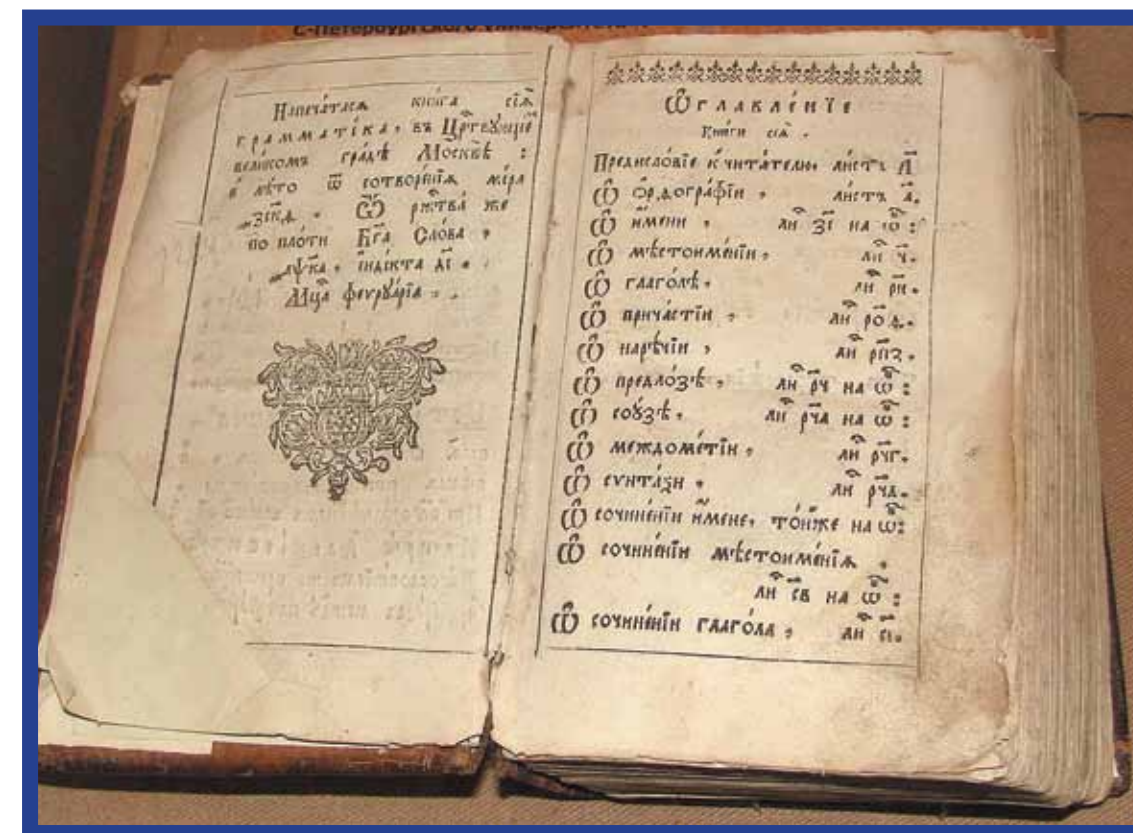 С-Петербургского университета
Напеча́тасѧ кни́га сїѧ̀
грамматі́ка, въ Црⷭ҇твꙋющеⷨ
великомъ гра́дѣ Москвѣ̀ :
в̾ лѣ́то ѿ сотворе́нїѧ мі́ра
Ѿ рⷤтва́ же
по пло́ти Бг҃а Сло́ва ,
і҆нді́кта д҃і .
Мц҃а феврꙋа́рїа .
Ѡ҆главле́нїе
Кни́ги сеѧ̀ .
Предисло́вїе к̾ чита́телю, ли́стъ а҃
Ѽ ѻ҆рѳогра́фїи , ли́стъ а҃.
Ѽ и҆́мени , лиⷭ҇ з҃і на ѿ :
Ѽ мѣстоиме́нїи , лиⷭ҇ ч҃.
Ѽ глаго́лѣ , лиⷭ҇ ри҃.
Ѽ прича́стїи , лиⷭ҇ ро҃д.
Ѽ нарѣ́чїи , лиⷭ҇ рп҃з.
Ѽ предло́зѣ , лиⷭ҇ рч҃ на ѿ :
Ѽ сою́зѣ , лиⷭ҇ рч҃а на ѿ :
Ѽ междоме́тїи , лиⷭ҇ рч҃г.
Ѽ сѵнта́ѯи , лиⷭ҇ рч҃д.
Ѽ сочине́нїи и҆́мене, то́йже на ѿ :
Ѽ сочине́нїи мѣстоиме́нїѧ ,
лиⷭ҇ с҃в на ѿ :
Ѽ сочине́нїи глаго́ла , лиⷭ҇ с҃і.